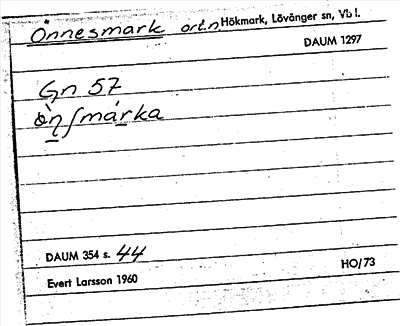 Önnesmark ort.n. Hökmark, Lövånger sn, Vb l.
DAUM 1297
Gn 57
DAUM 354 s. 44
Evert Larsson 1960
HO/73